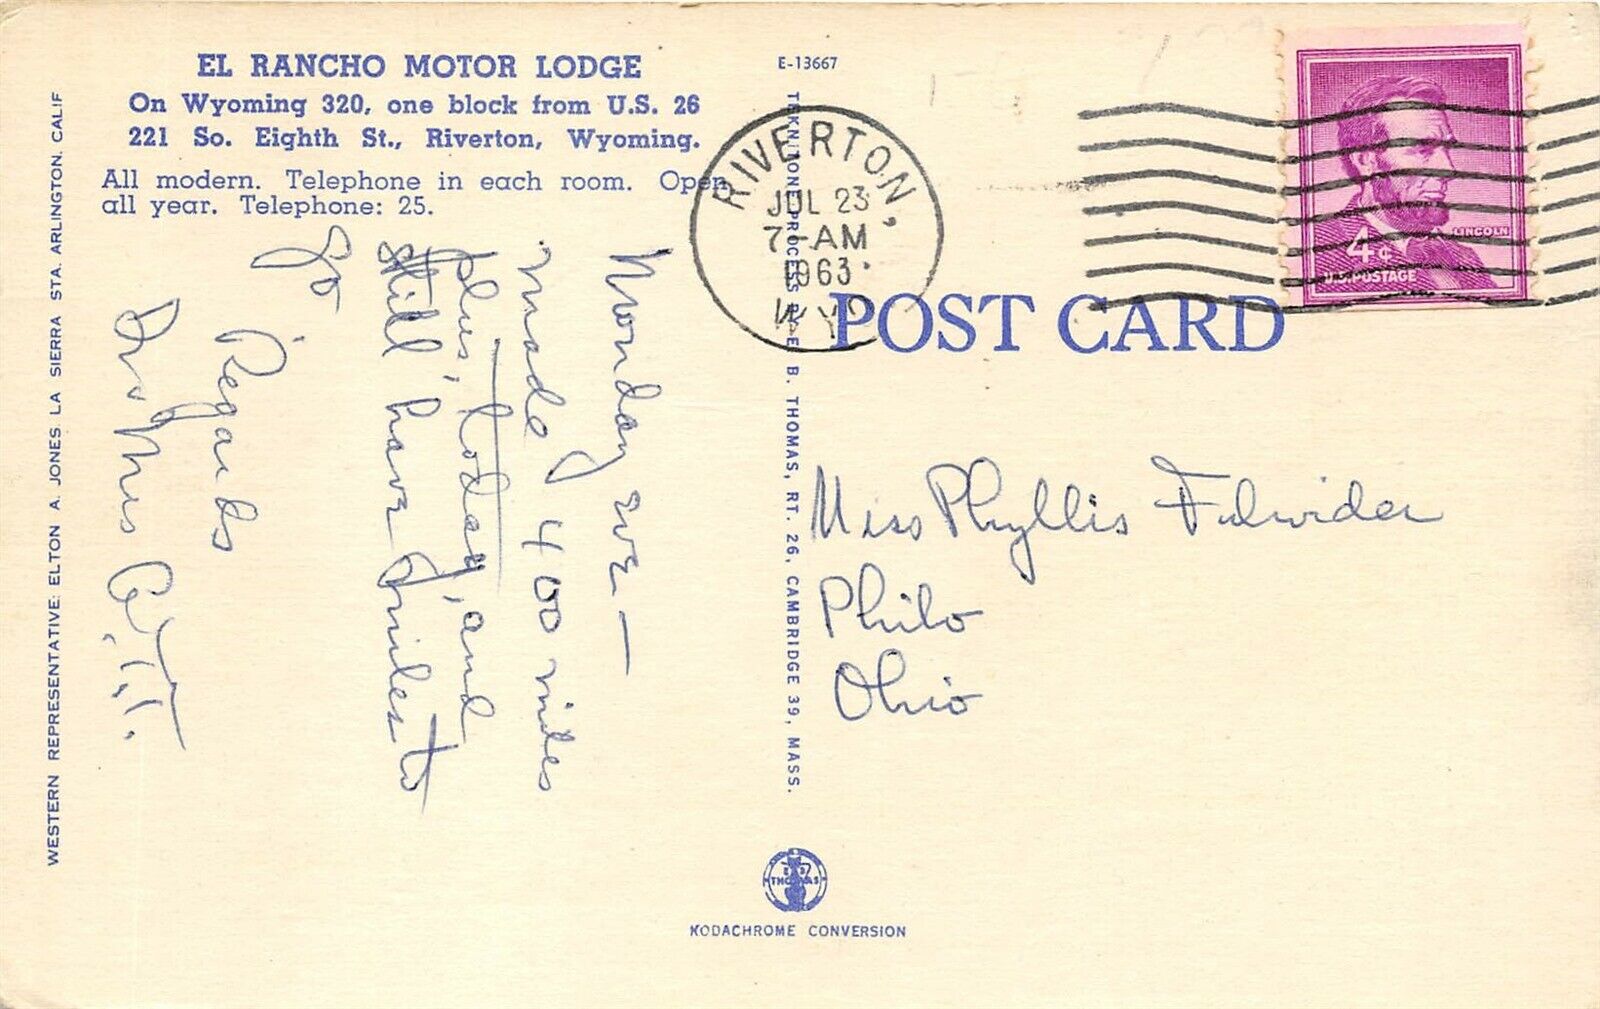 EL RANCHO MOTOR LODGE
On Wyoming 320, one block from U.S. 26
221 So. Eighth St., Riverton, Wyoming.
All modern. Telephone in each room. Open
all year. Telephone: 25.
Monday eve —
made 400 miles
plus, today, and
still have miles to
go
Regards
Dr & Mrs
WESTERN REPRESENTATIVE: ELTON A. JONES LA SIERRA STA. ARLINGTON, CALIF
E-13667
TEKNITONE PROCESS BY E. B. THOMAS, RT. 26, CAMBRIDGE 39, MASS.
RIVERTON,
JUL 23
7-AM
1963
WYO
POST CARD
LINCOLN
4¢
U.S. POSTAGE
Miss Phyllis Fulwider
Philo
Ohio
THOMAS
KODACHROME CONVERSION